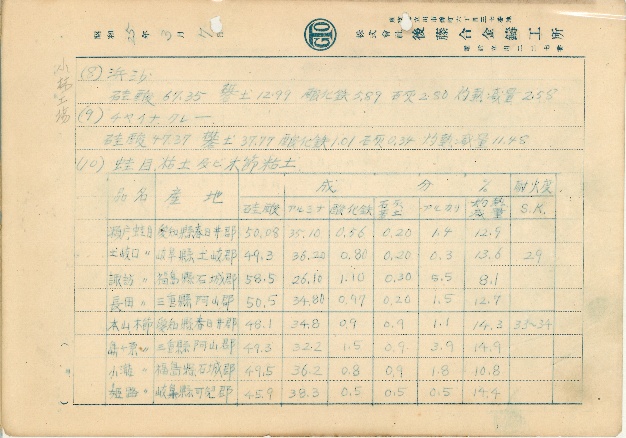 昭和25年3月7日
株式會社 後藤合金鑄工所
小林工場
(8) 浜砂
硅酸 67.35 礬土 12.99 酸化鉄 5.89 石灰 2.80 灼熱減量 2.55
(9) チャイナクレー
硅酸 47.37 礬土 37.77 酸化鉄 1.01 石灰 0.34 灼熱減量 11.45
(10) 蛙目粘土及ビ木節粘土
品名 産地 成分 % 耐火度
硅酸 アルミナ 酸化鉄 アルカリ 灼熱減量 S.K.
瀬戸蛙目 愛知縣春日井郡 50.08 35.10 0.56 0.20 1.4 12.9
土岐口 〃 岐阜縣土岐郡 49.3 36.20 0.80 0.20 0.3 13.6 29
諏訪 〃 福島縣石城郡 58.5 26.10 1.10 0.30 5.5 8.1
長田 〃 三重縣阿山郡 50.5 34.80 0.97 0.20 1.5 12.7
本山木節 愛知縣春日井郡 48.1 34.8 0.9 0.9 1.1 14.3 33~34
島ヶ原 〃 三重縣阿山郡 49.3 32.2 1.5 0.9 3.9 14.9
小滝 〃 福島縣石城郡 49.5 36.2 0.8 0.9 1.8 10.8
姫路 〃 岐阜縣可児郡 45.9 38.3 0.5 0.5 0.5 14.4